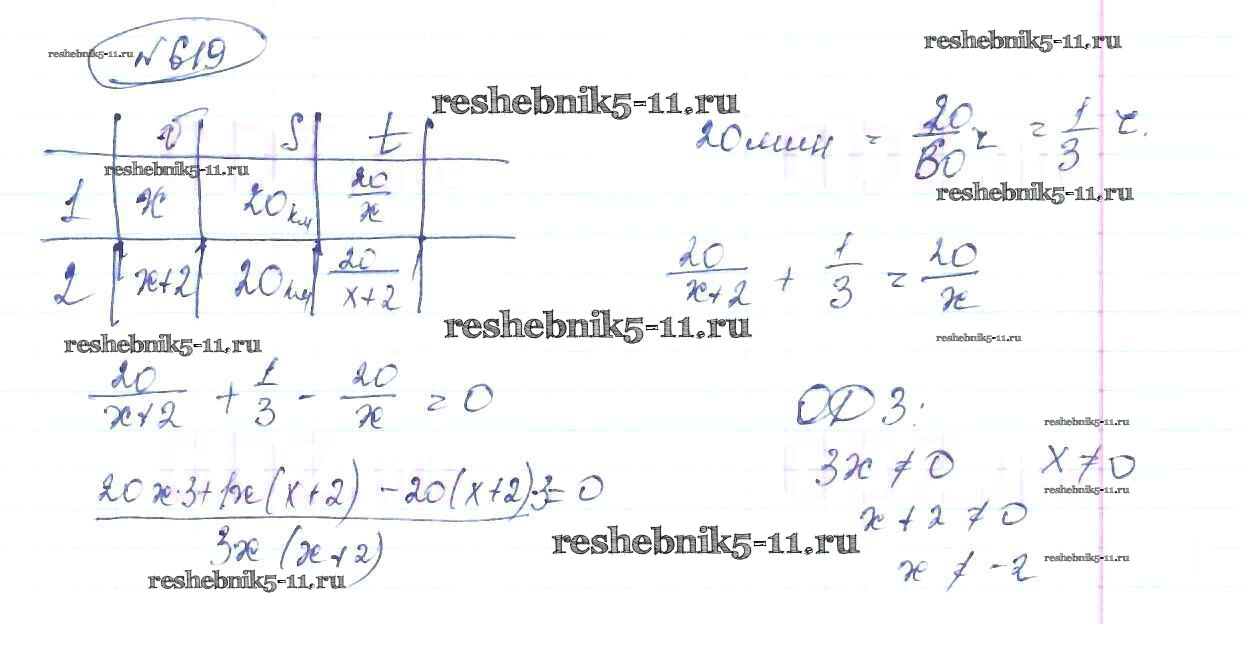 №619
reshebnik5-11.ru
reshebnik5-11.ru
reshebnik5-11.ru
v S t
20 мин = 20/60 ч = 1/3 ч.
reshebnik5-11.ru
reshebnik5-11.ru
1 x 20 км 20/x
2 x+2 20 км 20/(x+2)
20/(x+2) + 1/3 = 20/x
reshebnik5-11.ru
reshebnik5-11.ru
reshebnik5-11.ru
20/(x+2) + 1/3 - 20/x = 0
ОДЗ:
reshebnik5-11.ru
3x ≠ 0 x ≠ 0
reshebnik5-11.ru
(20x·3+1x(x+2) -20(x+2)·3)/(3x(x+2)) = 0
x+2 ≠ 0
reshebnik5-11.ru
x ≠ -2
reshebnik5-11.ru
reshebnik5-11.ru